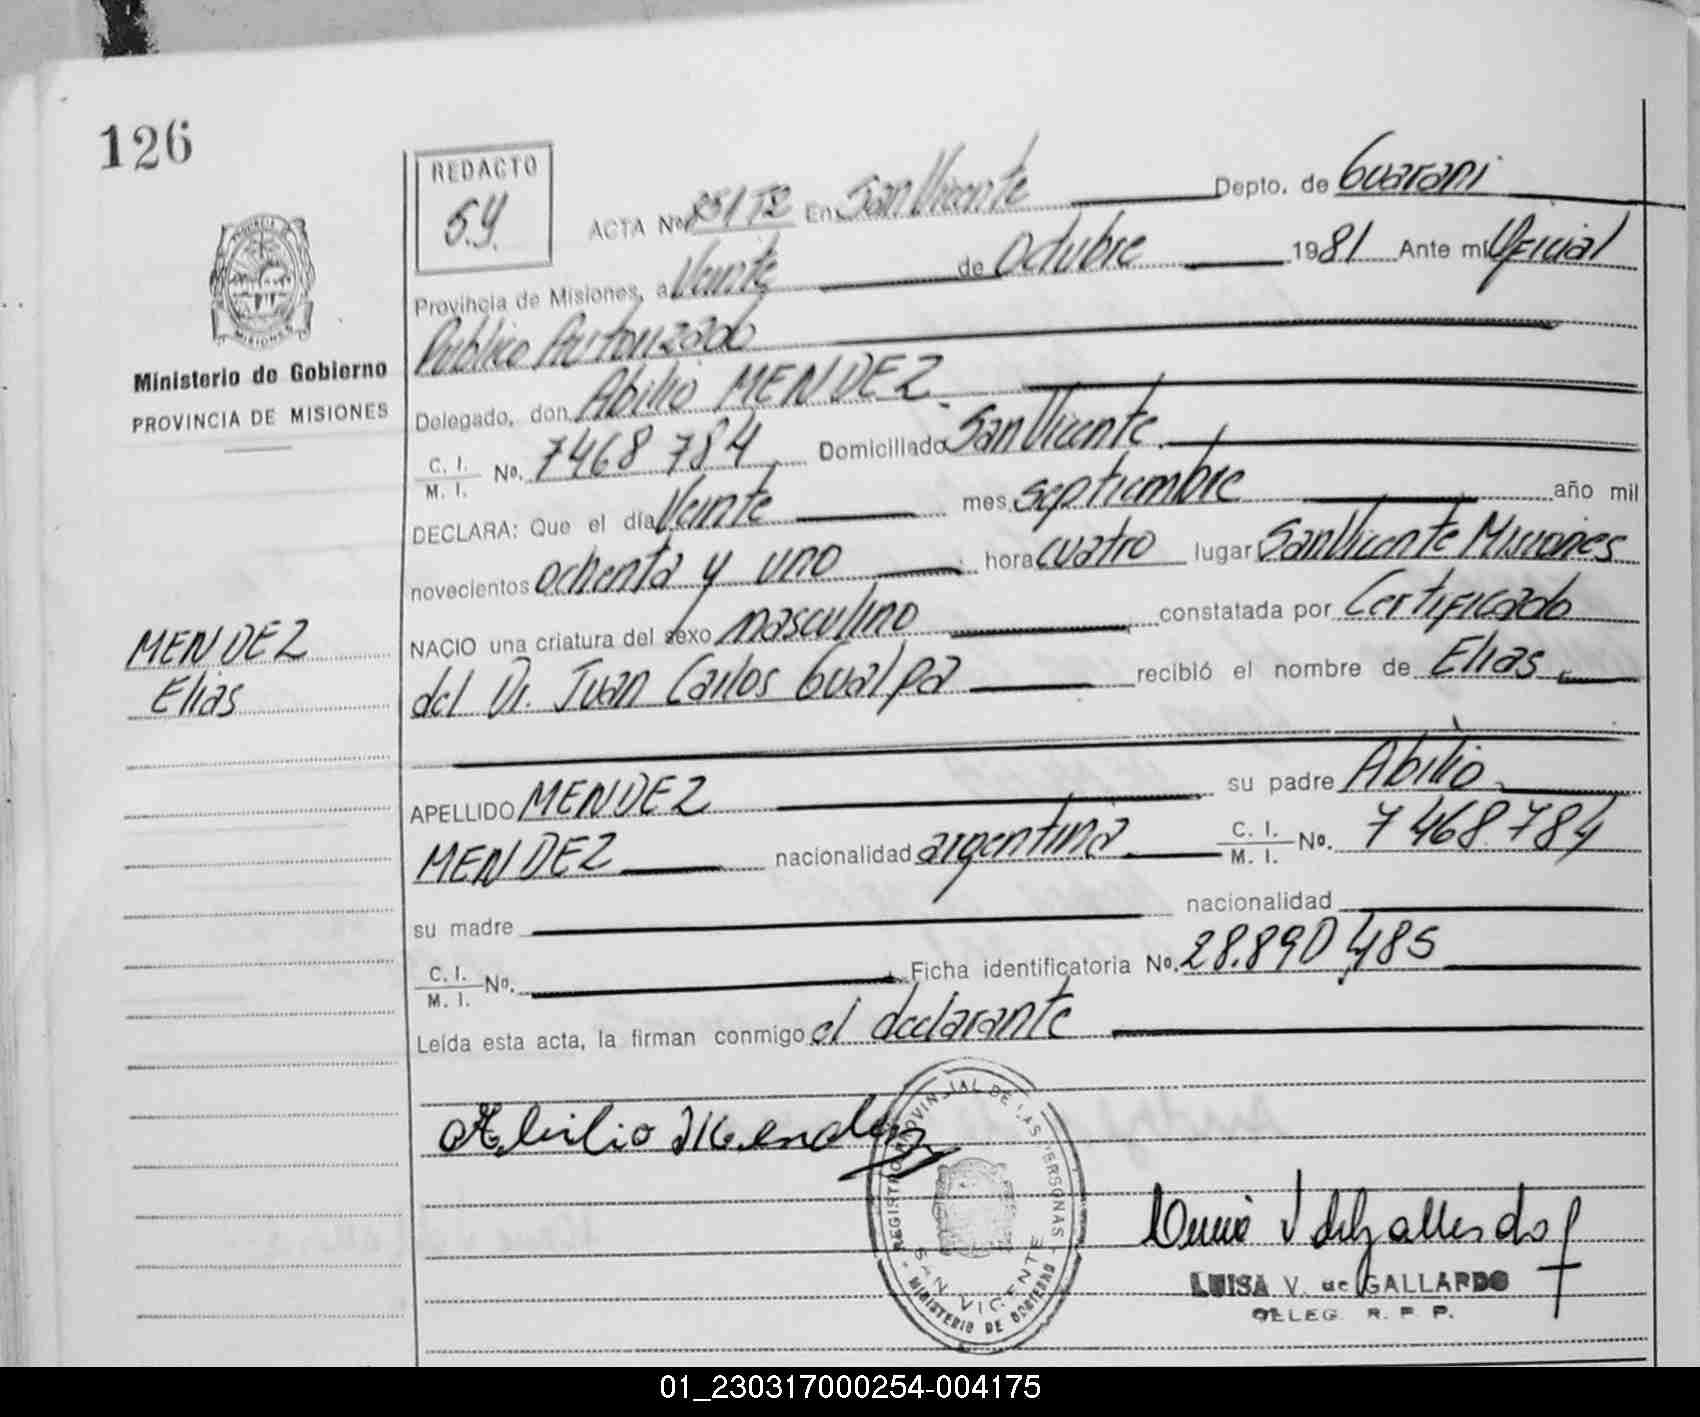 126
REDACTO
S.Y.
ACTA No. 851T2 En San Vicente Depto. de Guarani
Provincia de Misiones, a Veinte de Octubre 1981 Ante mi Oficial
Publico Autorizado
Delegado, don Abilio MENDEZ
C. I.
M. I. No. 7468 784 Domiciliado San Vicente
DECLARA: Que el día Veinte mes septiembre año mil
novecientos ochenta y uno hora cuatro lugar San Vicente Misiones
NACIO una criatura del sexo masculino constatada por Certificado
del Dr. Juan Carlos Gualpa recibió el nombre de Elias
APELLIDO MENDEZ su padre Abilio
MENDEZ nacionalidad argentina C. I.
M. I. No. 7468.784
su madre nacionalidad
C. I.
M. I. No. Ficha identificatoria No. 28.890 485
Leída esta acta, la firman conmigo el declarante
PROVINCIA
MISIONES
Ministerio de Gobierno
PROVINCIA DE MISIONES
MENDEZ
Elias
Abilio Mendez
REGISTRO PROVINCIAL DE LAS PERSONAS
SAN VICENTE
MINISTERIO DE GOBIERNO
LUISA V. de GALLARDO
DELEG. R. P. P.
01_230317000254-004175